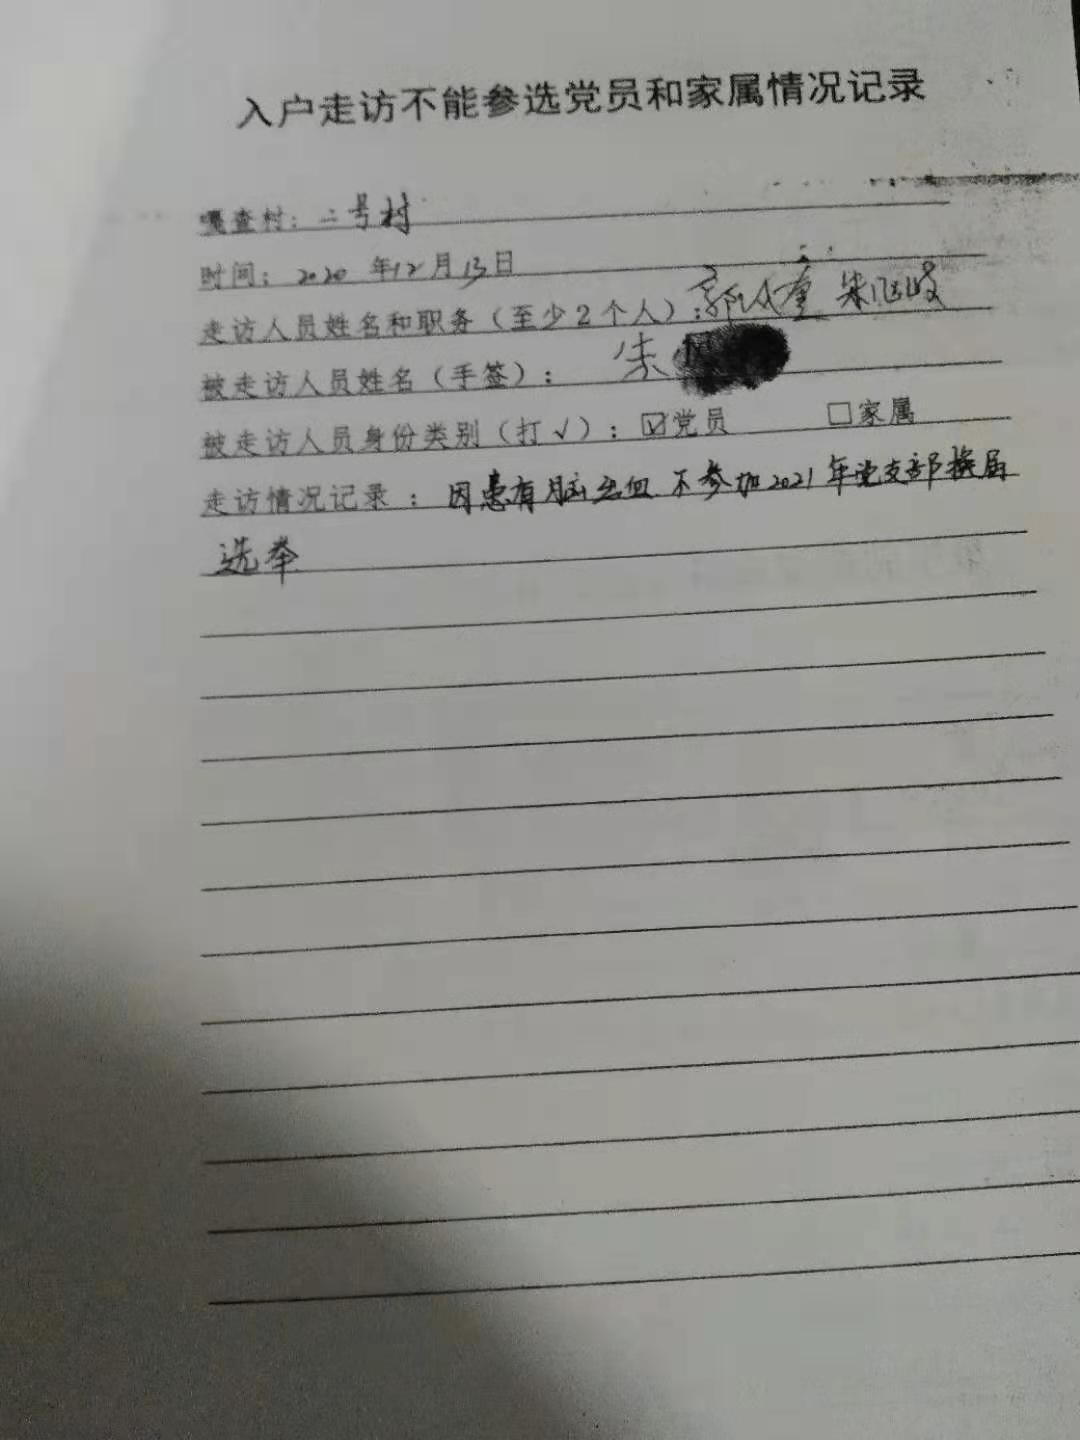 入户走访不能参选党员和家属情况记录
嘎查村：二号村
时间：2020 年12月13日
走访人员姓名和职务（至少2个人）：
被走访人员姓名（手签）： 朱
被走访人员身份类别（打√）：☑党员 □家属
走访情况记录：因患有脑出血不参加2021年党支部换届
选举